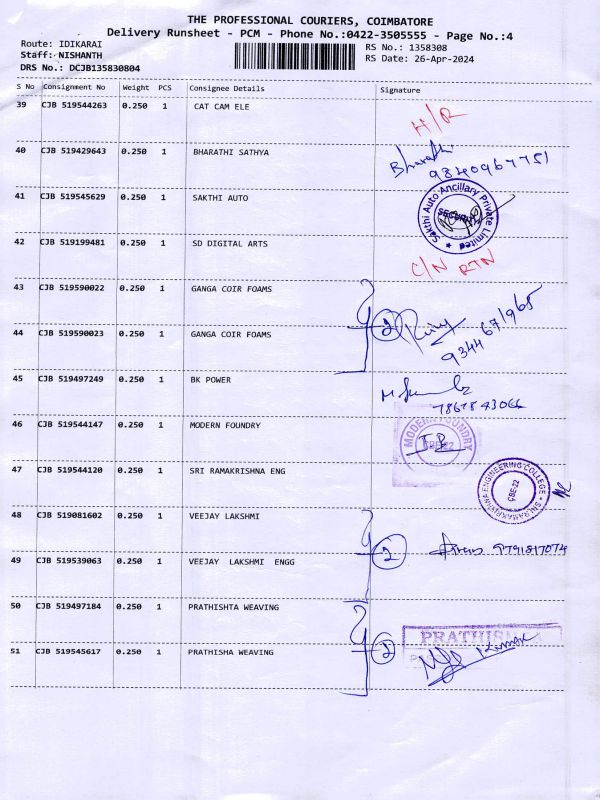 THE PROFESSIONAL COURIERS, COIMBATORE
Delivery Runsheet - PCM - Phone No.:0422-3505555 - Page No.:4
Route: IDIKARAI
RS No.: 1358308
Staff: NISHANTH
RS Date: 26-Apr-2024
DRS No.: DCJB135830804
S No Consignment No Weight PCS Consignee Details Signature
39 CJB 519544263 0.250 1 CAT CAM ELE H/R
40 CJB 519429643 0.250 1 BHARATHI SATHYA Bharathi
9840967751
41 CJB 519545629 0.250 1 SAKTHI AUTO Sakthi Auto Ancillary Private Limited SECURITY
42 CJB 519199481 0.250 1 SD DIGITAL ARTS C/N RTN
43 CJB 519590022 0.250 1 GANGA COIR FOAMS
2
9344671965
44 CJB 519590023 0.250 1 GANGA COIR FOAMS
45 CJB 519497249 0.250 1 BK POWER
7867843066
46 CJB 519544147 0.250 1 MODERN FOUNDRY MODERN FOUNDRY CBE-22
47 CJB 519544120 0.250 1 SRI RAMAKRISHNA ENG SRI RAMAKRISHNA ENGINEERING COLLEGE CBE-22
48 CJB 519081602 0.250 1 VEEJAY LAKSHMI
2 9791817074
49 CJB 519539063 0.250 1 VEEJAY LAKSHMI ENGG
50 CJB 519497184 0.250 1 PRATHISHTA WEAVING
PRATHIS
2 Kumar
51 CJB 519545617 0.250 1 PRATHISHA WEAVING